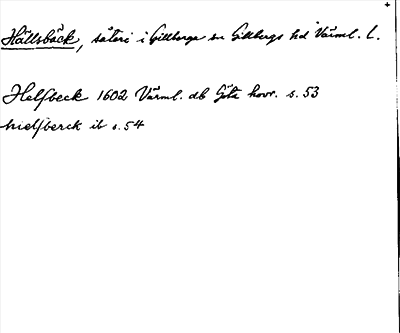 Hällsbäck, säteri i Gillberga sn Gillbergs hd Värml. l.
Helsbeck 1602 Värml. db Göta hovr. s. 53
hielsberck ib s. 54